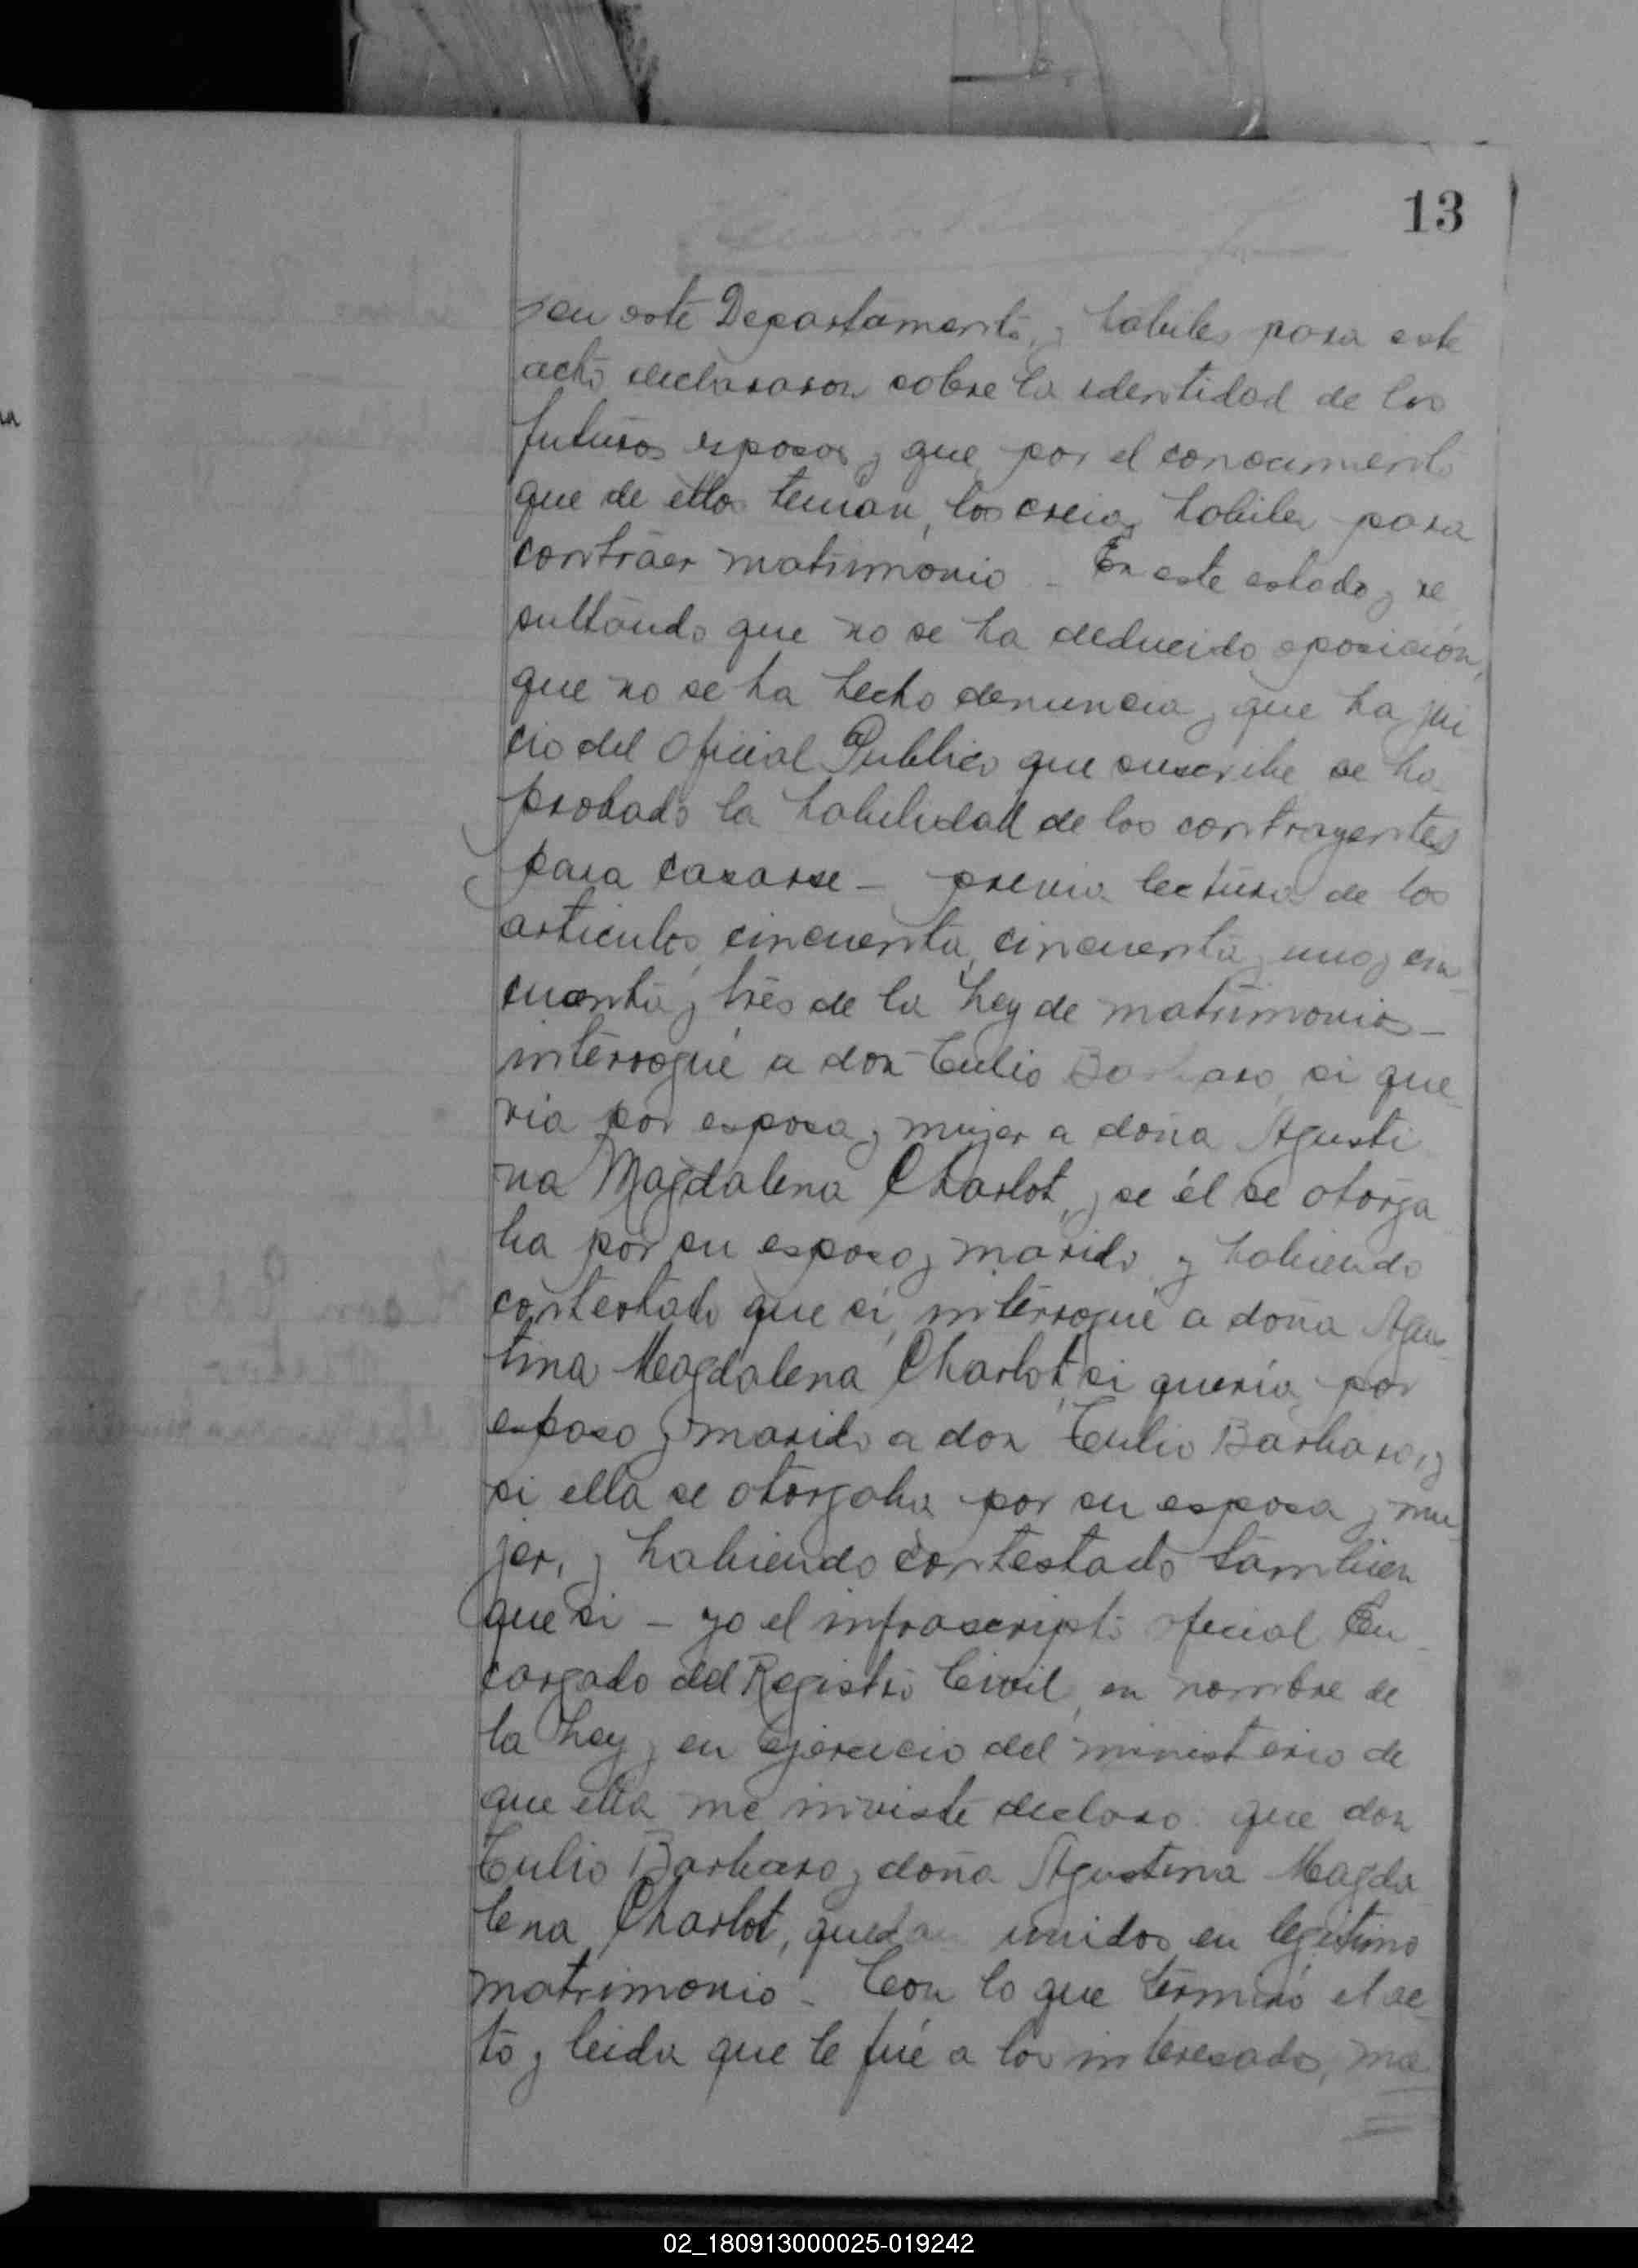 13
en este Departamento, y habiles para este
acto declararon sobre la identidad de los
futuros esposos y que por el conocimiento
que de ellos tenian, los creia habiles para
contraer matrimonio - En este estado y re
sultando que no se ha deducido oposicion,
que no se ha hecho denuncia y que ha jui
cio del Oficial Publico que suscribe se ha
probado la habilidad de los contrayentes
para casarse - previa lectura de los
articulos cincuenta, cincuenta y uno y cin
cuenta y tres de la Ley de matrimonios -
interrogué a don Tulio Barbaro si que
ria por esposa y mujer a doña Agusti
na Magdalena Charlot, y se él se otorga
ba por su esposo y marido y habiendo
contestado que si, interrogué a doña Agus
tina Magdalena Charlot, si queria por
esposo y marido a don Tulio Barbaro, y
si ella se otorgaba por su esposa y mu
jer, y habiendo contestado tambien
que si - yo el infrascripto oficial En
cargado del Registro Civil, en nombre de
la Ley y en ejercicio del ministerio de
que ella me inviste declaro: que don
Tulio Barbaro y doña Agustina Magda
lena Charlot, quedan unidos en legitimo
matrimonio - Con lo que terminó el ac
to y leida que le fué a los interesados, ma
02_180913000025-019242